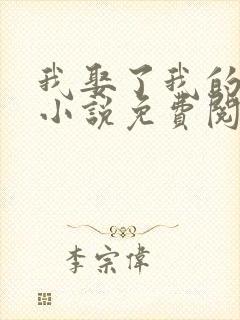 我娶了我的
小說免費閱
李宗偉